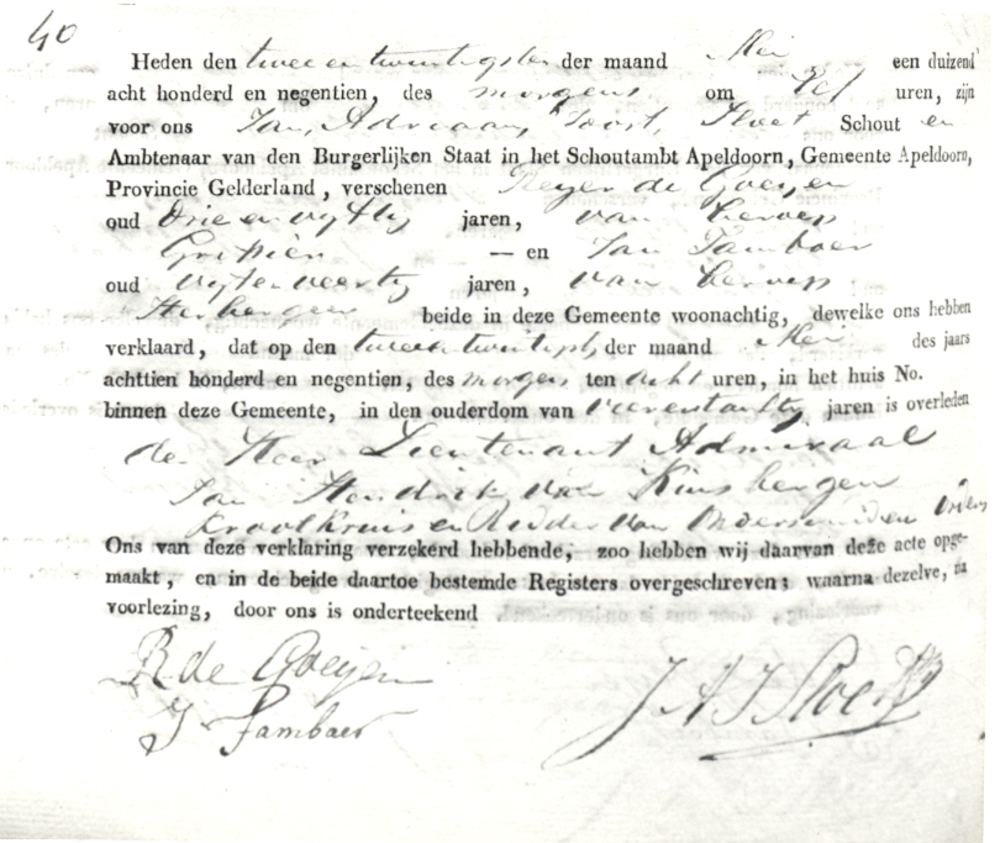 40
Heden den twee en twintigsten der maand Mei een duizend
acht honderd en negentien, des morgens om elf uren, zijn
voor ons Jan, Adriaan, Joost, Sloet Schout en
Ambtenaar van den Burgerlijken Staat in het Schoutambt Apeldoorn, Gemeente Apeldoorn,
Provincie Gelderland, verschenen Reyer de Goeijen
oud Drie en vyftig jaren, van beroep
Griffier — en Jan Tamboer
oud vyf en veertig jaren, van beroep
Herbergier beide in deze Gemeente woonachtig, dewelke ons hebben
verklaard, dat op den twee en twintigst, der maand Mei des jaars
achttien honderd en negentien, des morgens ten acht uren, in het huis No.
binnen deze Gemeente, in den ouderdom van vier en tachtig jaren is overleden
de Heer Lieutenant Admiraal
Jan Hendrik van Kinsbergen
Groot Kruis en Ridder van onderscheiden orders
Ons van deze verklaring verzekerd hebbende, zoo hebben wij daarvan deze acte opge-
maakt, en in de beide daartoe bestemde Registers overgeschreven; waarna dezelve, na
voorlezing, door ons is onderteekend
R. de Goeijen
J Tamboer
J A J Sloet